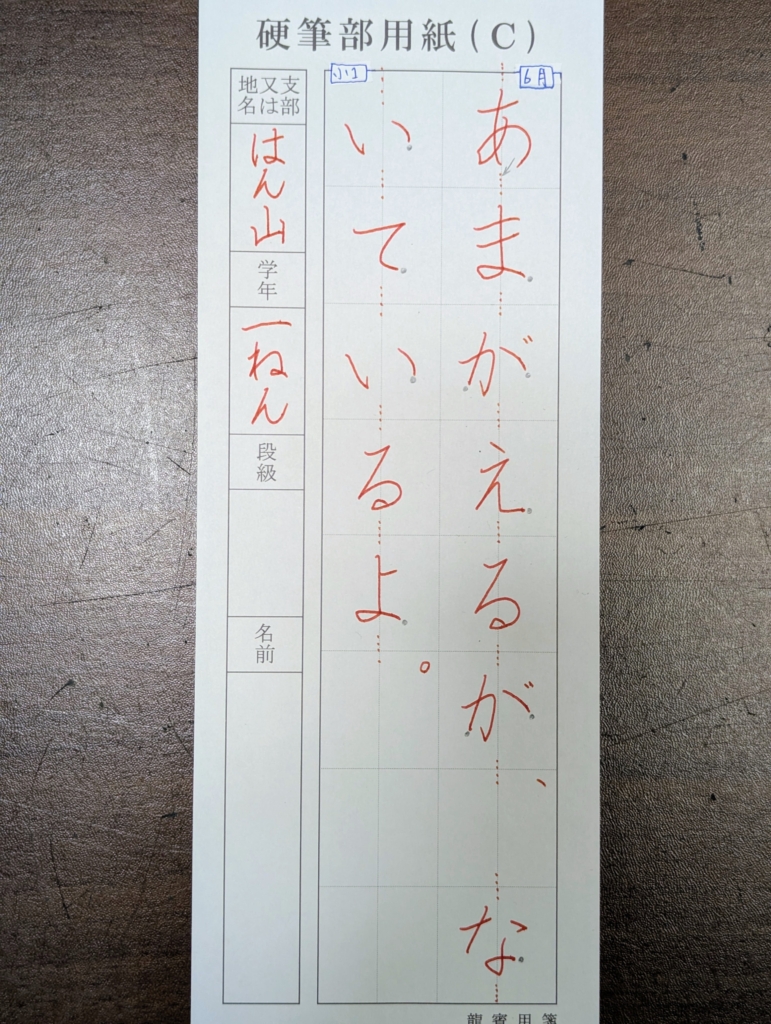 硬筆部用紙(C)
6月
小1
あまがえるが、な
いているよ。
支部又は地名
はん山
学年
一ねん
段級
名前
龍賓用箋